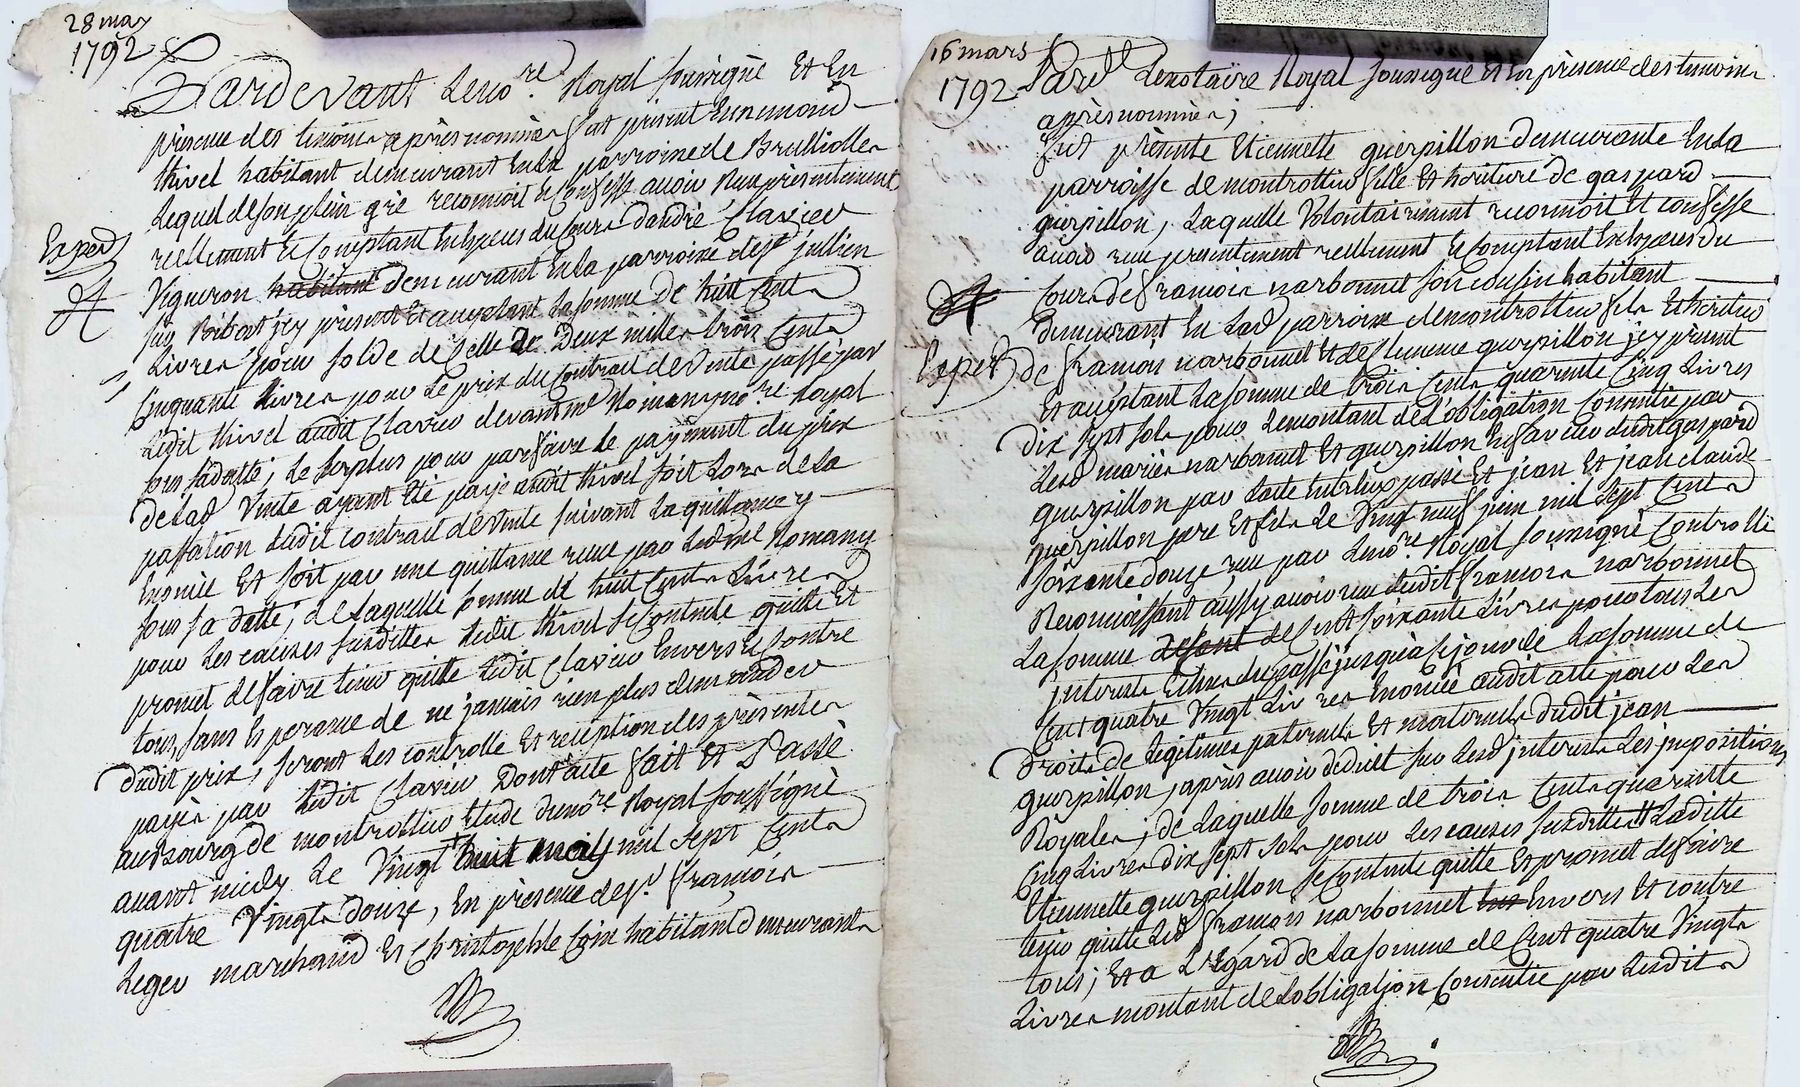 28 may
1792
Pardevant Le no.re Royal soussigné Et En
présence des témoins après nommés fut présent Ennemond
thivel habitant demeurant En la parroisse de Brulliolles
Lequel de son plein gré reconnoit Et Confesse avoir Reçu présentement
Exped
réellement Et Comptant En Especes du Cours d'andré Clavier
Vigneron habitant demeurant En la parroisse de st jullien
sur Bibost jcy présent Et acceptant La somme de huit Cents
Livres pour solde de Celle de Deux milles trois Cents
Cinquante Livres pour Le prix du Contrat de Vente passé par
Ledit thivel audit Clavier devant me Romany no.re Royal
sous sa datte; Le surplus pour parfaire Le payement du prix
de Lad Vente ayant été payé audit thivel soit Lors de La
passation dudit contrat de Vente suivant La quittance y
Enoncée Et soit par une quittance reçue par Ledit me Romany
sous sa datte; de Laquelle somme de huit Cents Livres
pour Les causes susdittes Ledit thivel se Contente quitte Et
promet de faire tenir quitte Ledit Clavier Envers Et Contre
tous, sans Esperance de ne jamais rien plus demander
dudit prix, seront Les controlle Et réception des présentes
payés par Ledit Clavier Dont acte fait Et Passé
au bourg de montrottier Etude du no.re Royal soussigné
avant midy Le Vingt huit may mil sept Cents
quatre Vingts douze, En présence de sr. françois
Leger marchand Et Christophle Coin habitants demeurants
16 mars
1792
Pard.t Le notaire Royal soussigné Et En présence des temoins
après nommés;
fut présente Etiennette guerpillon demeurante En La
parroisse de montrottier fille Et héritière de gaspard
guerpillon, Laquelle Volontairement reconnoit Et confesse
avoir reçu présentement réellement Et Comptant En Especes du
Cours de françois narbonnet son cousin habitant
demeurant En Lad parroisse de montrottier fils Et héritier
Exped
de françois narbonnet Et de guerpillon jcy présent
Et acceptant La somme de trois Cents quarante Cinq Livres
Dix sept sols pour Le montant de L'obligation Consentie par
Lesd mariés narbonnet Et guerpillon En faveur dudit gaspard
guerpillon par acte Entr'Eux passé Et jean Et jean claude
guerpillon pere Et fils Le Vingt neuf juin mil sept Cents
soixante douze reçu par Le no.re Royal soussigné Controllé
Reconnoissant aussy avoir reçu dudit françois narbonnet
La somme de Cent soixante Livres pour tous Les
jnterets Echus du passé jusqu'à Ce jour de La somme de
Cent quatre Vingt Livres Enoncée audit acte pour Les
Droits de Légitimes paternels Et maternels dudit jean
guerpillon, après avoir déduit sur Lesd jnterets Les jmpositions
Royales; de Laquelle somme de trois Cents quarante
Cinq Livres dix sept sols pour Les causes susdittes Laditte
Etiennette guerpillon se Contente quitte Et promet de faire
tenir quitte Led françois narbonnet Envers Et contre
tous; Et a L'Egard de La somme de Cent quatre Vingts
Livres montant de L'obligation Consentie par Lesdits